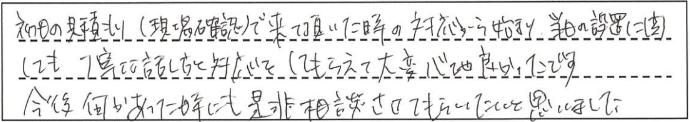 初回の見積もり(現場確認)で来て頂いた時の対応から始まり、当日の設置に関
しても丁寧な話し方と対応をしてもらえて大変心地良かったです
今後何かあった時にも是非相談させてもらいたいと思いました